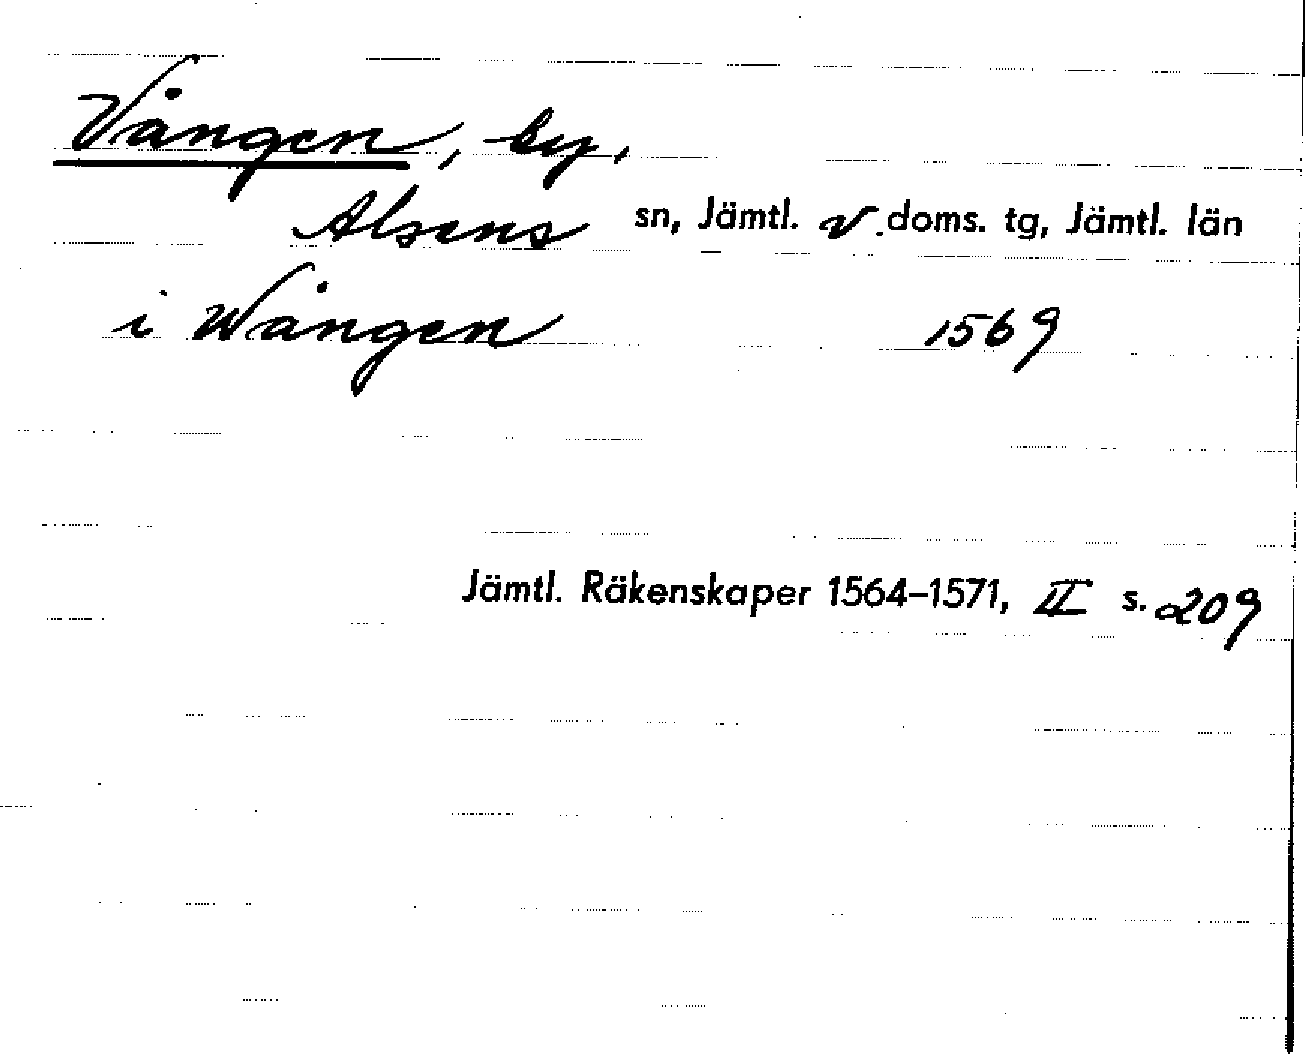 Vången, by,
Alsens sn, Jämtl. v. doms. tg, Jämtl. län
i Wången 1569
Jämtl. Räkenskaper 1564–1571, II s. 209